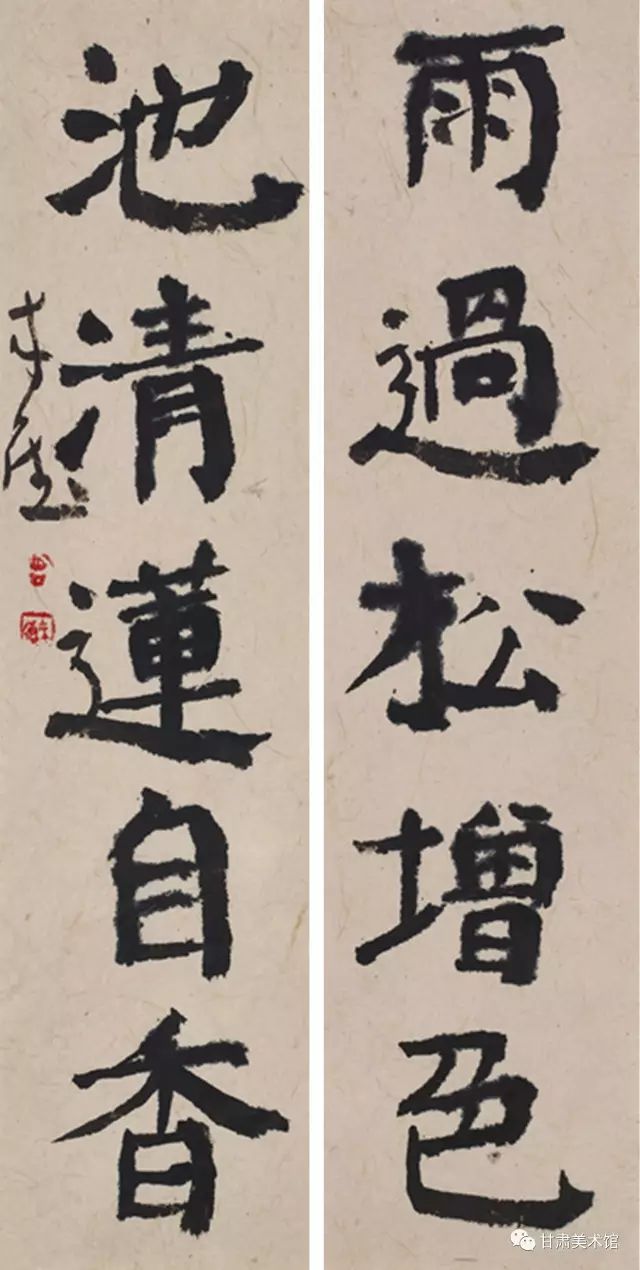 雨過松增色
池清蓮自香
甘肃美术馆